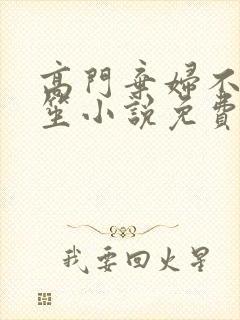 高門棄婦不
笙小說免費
我要回火星